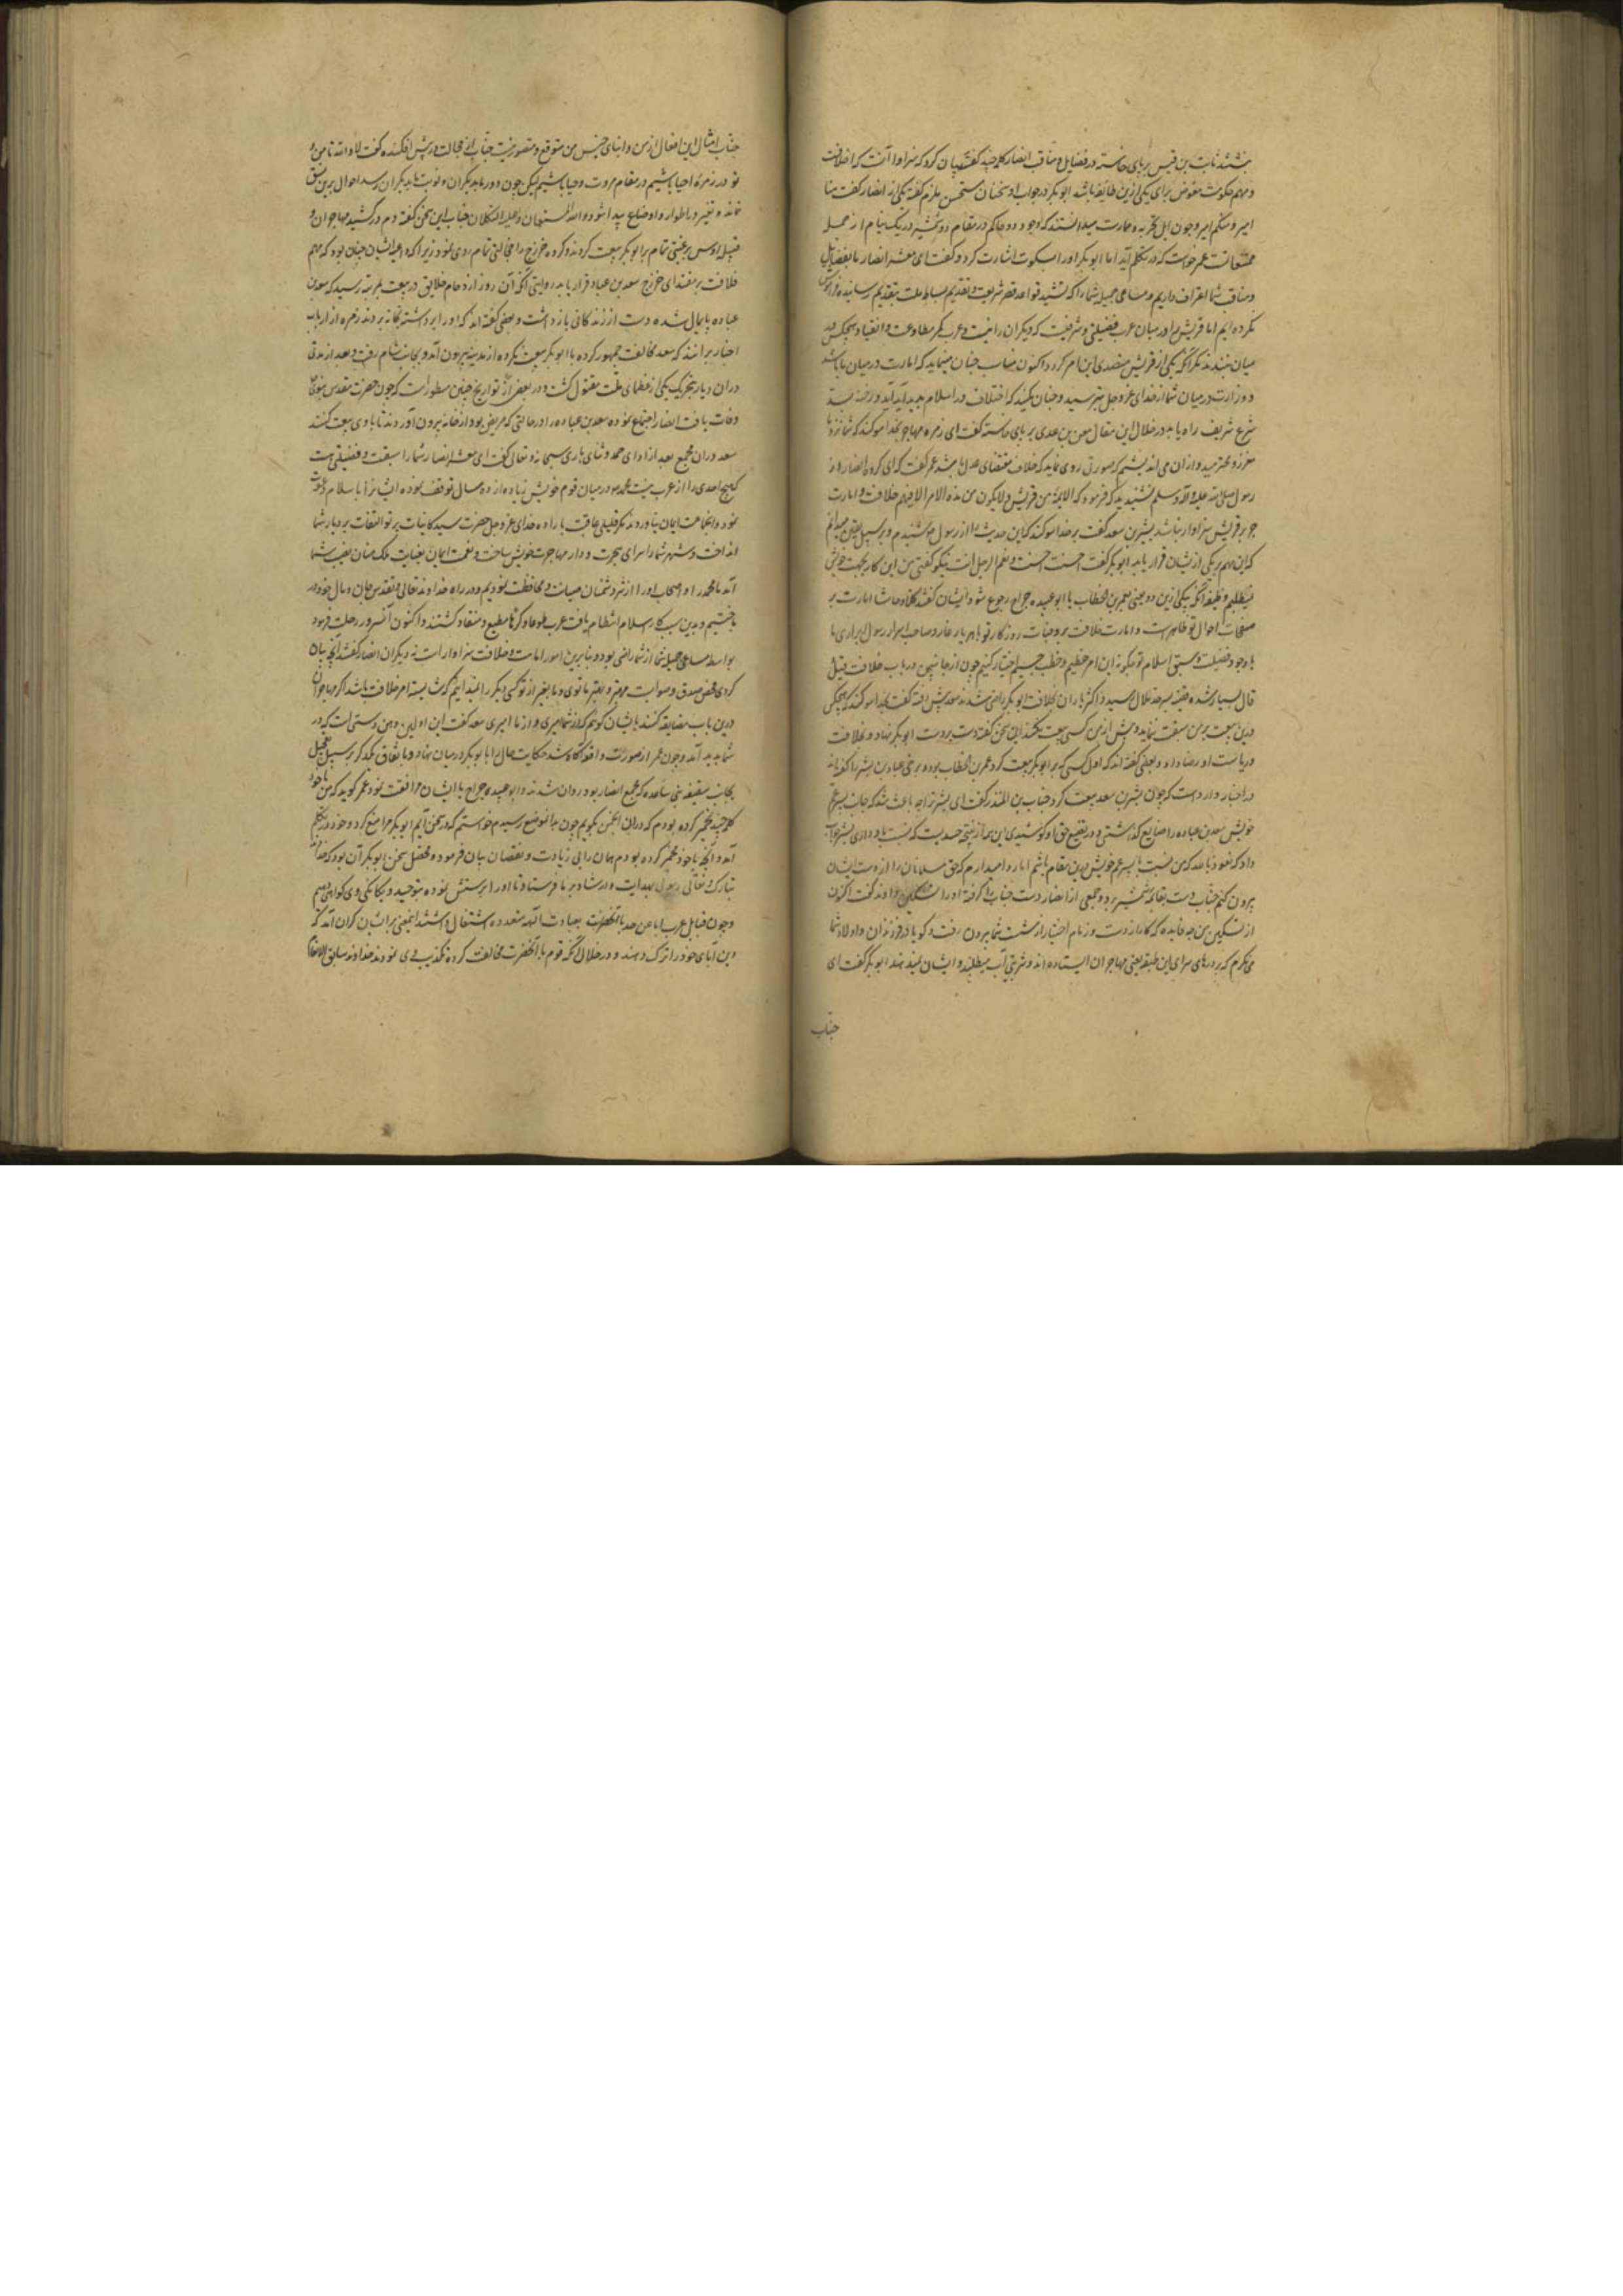 بنشستند ثابت بن قیس بر پای خاسته در فضایل و مناقب انصار کلمه چند گفته بیان کرد که سزاوار آنست که خلافت
و مهم حکومت مفوض برای یکی ازین طایفه باشد ابو بکر در جواب او سخنان مستحسن ملایم گفته یکی از انصار گفت منا
امیر و منکم امیر و چون اهل تجربه و مهارت میدانستند که وجود دو حاکم در مقام دو شمشیر در یک نیام از جمله
ممتنعاتست عمر خواست که در تکلم آید اما ابو بکر او را بسکوت اشارت کرد و گفت ای معشر انصار ما بفضایل
و مناقب شما اعتراف داریم و مساعی جمیله شما را که بتشیید قواعد قصر شریعت و تقدیم بساط ملت بتقدیم رسانیده فراموش
نکرده ایم اما قریش را در میان عرب فضیلتی و شرفیست که دیگران را نیست و عرب بکمر مطاوعت و انقیاد هیچکس
میان نبندند مگر آنکه یکی از قریش متصدی این امر گردد و اکنون مناسب چنان مینماید که امارت در میان ما باشد
و وزارت در میان شما از خدای عز و جل بترسید و چنان مکنید که اختلاف در اسلام پدید آید
شرع شریف راه یابد در خلال این مقال معن بن عدی بر پای خاسته گفت ای زمره مهاجر بخدا سوگند که شما نزد ما
معزز و محترمید و از آن می اندیشیم که صورتی روی نماید که خلاف مقتضای عدل باشد عمر گفت که ای گروه انصار از
رسول صلی الله علیه و آله و سلم نشنیدید که فرمود که الائمة من قریش و لا یکون من هذه الامر الا فیهم خلافت و امارت
جز بر قریش سزاوار نباشد بشیر بن سعد گفت بخدا سوگند که این حدیث را از رسول شنیدم و بر سبیل یقین میدانم
که این مهم بر یکی ازیشان قرار یابد ابو بکر گفت احسنت احسنت و نعم الرجل انت نیکو گفتی من این کار بجهت خویش
نمیطلبم وظیفه آنکه بیکی ازین دو یعنی بعمر بن الخطاب یا ابو عبیده جراح رجوع شود ایشان گفتند کلا و حاشا امارت بر
صفحات احوال تو ظاهرست و امارت خلافت بر وجنات روزگار تو باهر یار غار و صاحب اسرار رسول ابراری ما
با وجود فضیلت و سبق اسلام تو چگونه این امر عظیم و خطب جسیم اختیار کنیم چون از جانبین در باب خلافت قیل و
قال بسیار شده قضیه بسرحد ملال رسید و اکثر یاران بخلافت ابو بکر راضی شدند سعد پیش رفته گفت بخدا سوگند که هیچکس
درین بیعت بر من سبقت ننماید و پیش از من کسی بیعت نکند این سخن گفته دست بر دست ابو بکر نهاد و بخلافت
و ریاست او رضا داد و بعضی گفته اند که اول کسی که با ابو بکر بیعت کرد عمر بن الخطاب بوده
در اخبار وارد است که چون بشیر بن سعد بیعت کرد حباب بن المنذر گفت ای بشیر ترا چه باعث شد که جانب پسر عم
خویش سعد بن عباده را ضایع گذاشتی و در تضییع حق او کوشیدی این همه از نتیجه حسدیست که نسبت باو داری بشیر جواب
داد که نعوذ بالله که من نسبت با پسر عم خویش درین مقام باشم اما روا میدارم که حق مسلمانان را از دست ایشان
بیرون کنم حباب دست بقایمه شمشیر برد و جمعی از انصار دست حباب را گرفته او را تسکین دادند گفت اکنون
از تسکین من چه فایده که کار از دست و زمام اختیار از مشت شما بیرون رفت و گویا در فرزندان و اولاد شما
می نگرم که بر درهای سرای این طبقه یعنی مهاجران ایستاده اند و شربتی آب میطلبند و ایشان نمیدهند ابو بکر گفت ای
حباب
حباب امثال این افعال از من و ابنای جنس من متوقع و متصور نیست حباب از خجالت در پیش افکنده گفت لا والله تا من و
تو در زمره احیا باشیم در مقام مروت و حیا باشیم لیکن چون دور ما بدیگران و نوبت ما بدیگران رسد احوال برین نسق
نماند و تغییر در اطوار و اوضاع پیدا شود و الله المستعان و علیه التکلان حباب این سخن گفته دم در کشید مهاجران و
قبیله اوس برغبتی تمام با ابو بکر بیعت کردند و گروه خزرج را خجالتی تمام روی نمود زیرا که داعیه ایشان چنان بود که مهم
خلافت بر مقتدای خزرج سعد بن عباده قرار یابد روایتی آنکه آن روز ازدحام خلایق در بیعت بمرتبه رسید که سعد بن
عباده پایمال شده دست از زندگانی باز داشت و بعضی گفته اند که او را برداشته بخانه بردند زمره از ارباب
اخبار برانند که سعد مخالفت جمهور کرده با ابو بکر بیعت نکرده از مدینه بیرون آمد و بجانب شام رفت و بعد از مدتی
در آن دیار بتحریک یکی از عظمای ملت مقتول گشت و در بعضی از تواریخ چنین مسطور است که چون حضرت مقدس نبوی
وفات یافت انصار اجتماع نموده سعد بن عباده را در حالتی که مریض بود از خانه بیرون آوردند تا با وی بیعت کنند
سعد در آن مجمع بعد از ادای حمد و ثنای باری سبحانه و تعالی گفت ای معشر انصار شما را سبقت و فضیلتی هست
که هیچ احدی را از عرب نیست محمد در میان قوم خویش زیاده از ده سال توقف نموده ایشانرا باسلام دعوت
نمود و آنجماعت ایمان نیاوردند مگر قلیلی عاقبت باراده خدای عز و جل حضرت سید کاینات پرتو التفات بر دیار شما
انداخت و شهر شما را سرای هجرت و دار مهاجرت خویش ساخت و نعمت ایمان بعنایت ملک منان نصیب شما
آمد تا محمد را و اصحاب او را از شر دشمنان صیانت و محافظت نمودیم و در راه خداوند تعالی و تقدس جان و مال خود در
باختیم و بدین سبب کار اسلام انتظام یافت عرب طوعا و کرها مطیع و منقاد گشتند و اکنون آنسرور رحلت فرمود
بواسطه مساعی جمیله شما از شما راضی بود و بنابرین امور امامت و خلافت سزاوار است نه دیگران انصار گفتند آنچه بیان
کردی محض صدق و صوابست مهتر و بهتر ما توی و ما بغیر از تو کسی دیگر را ندانیم که شایسته امر خلافت باشد اگر مهاجران
درین باب مضایقه کنند بایشان گوئیم که از شما امیری و از ما امیری سعد گفت این اولین وهن و سستی است که در
شما پدید آمد و چون عمر از صورت واقعه آگاه شد حکایت حال را با ابو بکر در میان نهاد و باتفاق یکدیگر بر سبیل تعجیل
بجانب سقیفه بنی ساعده که مجمع انصار بود روان شدند و ابو عبیده جراح با ایشان مرافقت نمود عمر گوید که من با خود
کلمه چند تخمیر کرده بودم که در آن انجمن بگویم چون بدانموضع رسیدم خواستم که در سخن آیم ابو بکر مرا منع کرد و خود در تکلم
آمد و آنچه با خود مخمر کرده بودم همان را بی زیادت و نقصان بیان فرمود و محصل سخن ابو بکر آن بود که خدای
تبارک و تعالی رسول بهدایت و ارشاد بر ما فرستاد تا او را پرستش نموده بتوحید و یگانگی وی گواهی دهیم
و چون قبایل عرب ابا عن جد بعبادت آلهه متعدده اشتغال داشتند اینمعنی بر ایشان گران آمد که
دین آبای خود را ترک دهند و در خلال آنکه قوم با آنحضرت مخالفت کرده تکذیب وی نمودند خداوند سابق الانعام